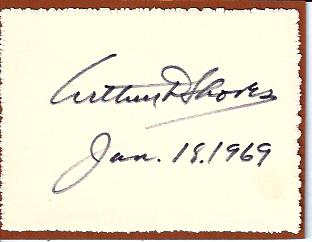 Arthur D Shores
Jan. 18. 1969